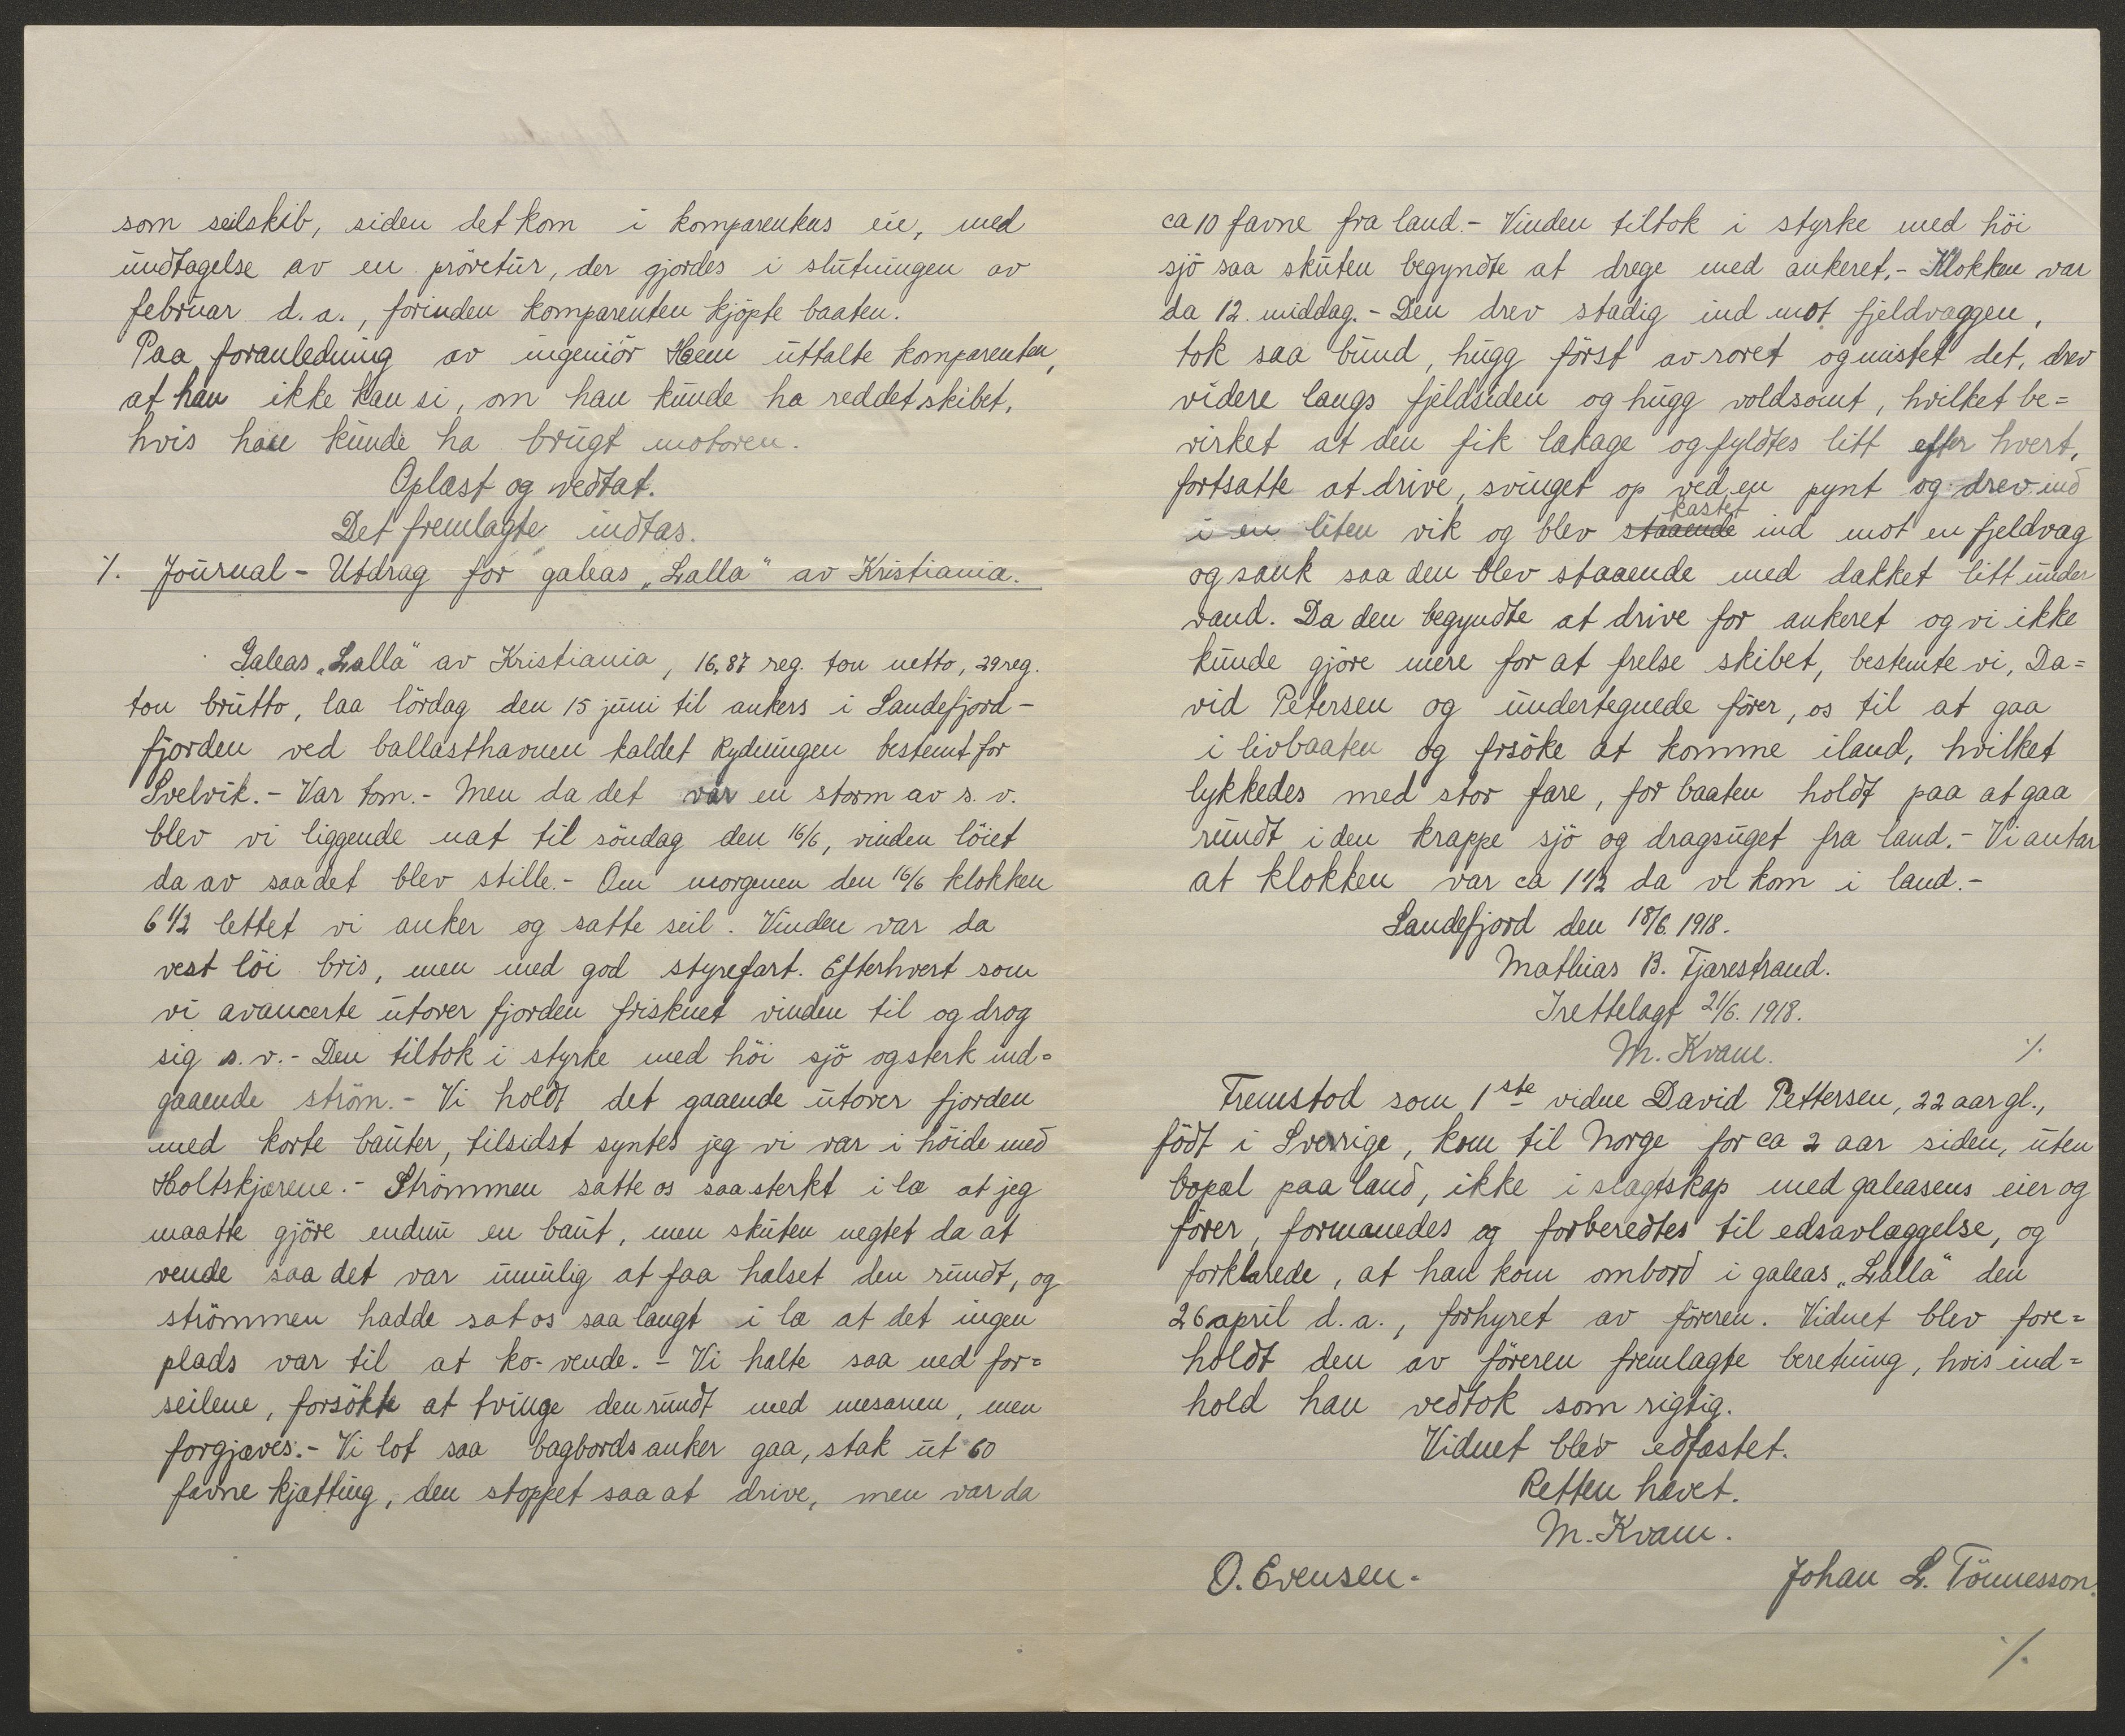 som seilskib, siden det kom i komparentens eie, med
undtagelse av en prövetur, der gjordes i slutningen av
februar d.a., forinden komparenten kjöpte baaten.
Paa foranledning av ingeniör Hem uttalte komparenten,
at han ikke kan si, om han kunde ha reddet skibet,
hvis han kunde ha brugt motoren.
Oplæst og vedtat.
Det fremlagte indtas.
⁒ Journal-Utdrag for galeas „Lalla" av Kristiania.
Galeas „Lalla" av Kristiania, 16,87 reg. ton netto, 29 reg.
ton brutto, laa lördag den 15 juni til ankers i Sandefjord-
fjorden ved ballasthavnen kaldet Rydningen bestemt for
Svelvik.- Var tom.- Men da det var en storm av s.v.
blev vi liggende nat til söndag den 16/6, vinden löiet
da av saa det blev stille.- Om morgenen den 16/6 klokken
6 1/2 lettet vi anker og satte seil. Vinden var da
vest löi bris, men med god styrefart. Efterhvert som
vi avancerte utover fjorden frisknet vinden til og drog
sig s.v.- Den tiltok i styrke med höi sjö og sterk ind=
gaaende ström.- Vi holdt det gaaende utover fjorden
med korte bauter, tilsidst syntes jeg vi var i höide med
Holtskjærene.- Strömmen satte os saa sterkt i læ at jeg
maatte gjöre endnu en baut, men skuten negtet da at
vende saa det var umulig at faa halset den rundt, og
strömmen hadde sat os saa langt i læ at det ingen
plads var til at ko-vende.- Vi halte saa ned for=
seilene, forsökte at tvinge den rundt med mesanen, men
forgjæves.- Vi lot saa bagbords anker gaa, stak ut 60
favne kjætting, den stoppet saa at drive, men var da
ca 10 favne fra land.- Vinden tiltok i styrke med höi
sjö saa skuten begyndte at drege med ankeret.- Klokken var
da 12 middag.- Den drev stadig ind mot fjeldvæggen,
tok saa bund, hugg först av roret og mistet det, drev
videre langs fjeldsiden og hugg voldsomt, hvilket be=
virket at den fik lækage og fyldtes litt efter hvert,
fortsatte at drive, svinget op ved en pynt og drev ind
i en liten vik og blev staaende kastet ind mot en fjeldvæg
og sank saa den blev staaende med dækket litt under
vand. Da den begyndte at drive for ankeret og vi ikke
kunde gjöre mere for at frelse skibet, bestemte vi, Da=
vid Petersen og undertegnede förer, os til at gaa
i livbaaten og frsöke at komme iland, hvilket
lykkedes med stor fare, for baaten holdt paa at gaa
rundt i den krappe sjö og dragsuget fra land.- Vi antar
at klokken var ca 1 1/2 da vi kom i land.-
Sandefjord den 18/6. 1918.
Mathias B. Fjærestrand.
Irettelagt 21/6. 1918.
M. Kvam. ⁒
Fremstod som 1ste vidne David Pettersen, 22 aar gl.,
födt i Sverrige, kom til Norge for ca 2 aar siden, uten
bopæl paa land, ikke i slagtskap med galeasens eier og
förer, formanedes og forberedtes til edsavlæggelse, og
forklarede, at han kom ombord i galeas „Lalla" den
26 april d.a., forhyret av föreren. Vidnet blev fore=
holdt den av föreren fremlagte beretning, hvis ind=
hold han vedtok som rigtig.
Vidnet blev edfæstet.
Retten hævet.
M. Kvam.
O. Evensen. Johan L. Tönnesson.
⁒